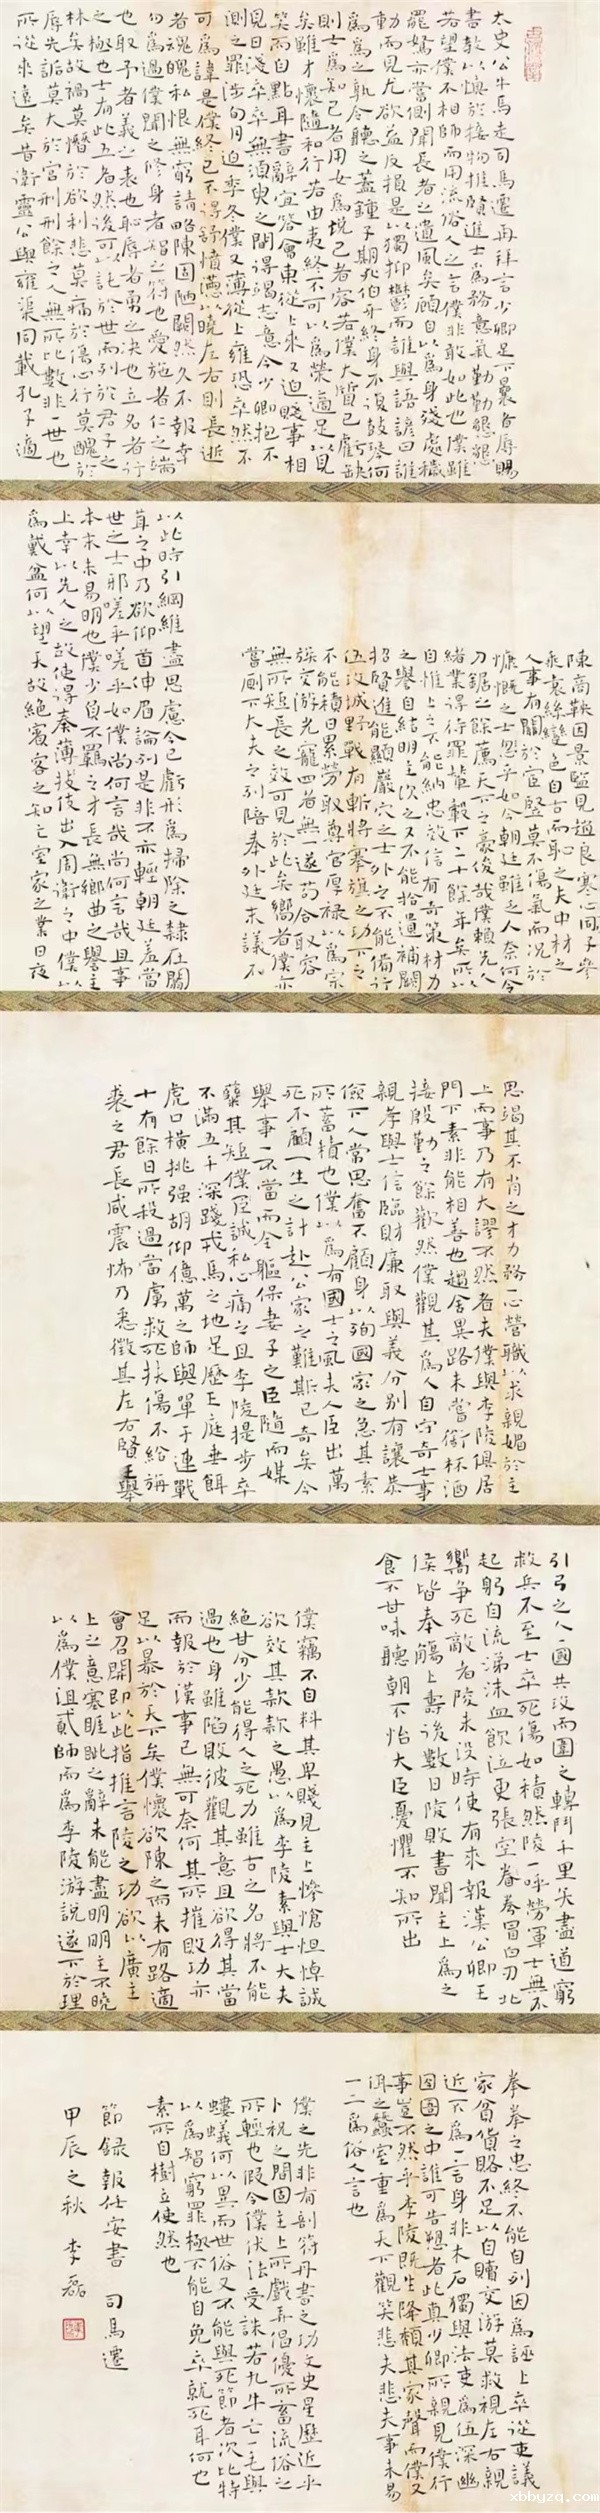 太史公牛馬走司馬遷再拜言少卿足下曩者辱賜
書教以慎於接物推賢進士為務意氣勤勤懇懇
若望僕不相師而用流俗人之言僕非敢如此也僕雖
罷駑亦嘗側聞長者之遺風矣顧自以為身殘處穢
動而見尤欲益反損是以獨抑鬱而誰與語諺曰誰
為為之孰令聽之蓋鍾子期死伯牙終身不復鼓琴何
則士為知己者用女為悅己者容若僕大質已虧缺
矣雖才懷隨和行若由夷終不可以為榮適足以見
笑而自點耳書辭宜答會東從上來又迫賤事相
見日淺卒卒無須臾之間得竭志意今少卿抱不
測之罪涉旬月迫季冬僕又薄從上雍恐卒然不
可為諱是僕終已不得舒憤懣以曉左右則長逝
者魂魄私恨無窮請略陳固陋闕然久不報幸
勿為過僕聞之修身者智之符也愛施者仁之端
也取予者義之表也恥辱者勇之決也立名者行
之極也士有此五者然後可以託於世而列於君子之
林矣故禍莫憯於欲利悲莫痛於傷心行莫醜於
辱先詬莫大於宮刑刑餘之人無所比數非一世也
所從來遠矣昔衛靈公與雍渠同載孔子適
陳商鞅因景監見趙良寒心同子參
乘袁絲變色自古而恥之夫中材之
人事有關於宦豎莫不傷氣而況於
慷慨之士乎如今朝廷雖乏人奈何令
刀鋸之餘薦天下之豪俊哉僕賴先人
緒業得待罪輦轂下二十餘年矣所以
自惟上之不能納忠效信有奇策材力
之譽自結明主次之又不能拾遺補闕
招賢進能顯巖穴之士外之不能備行
伍攻城野戰有斬將搴旗之功下之
不能積日累勞取尊官厚祿以為宗
族交游光寵四者無一遂苟合取容
無所短長之效可見於此矣嚮者僕亦
嘗廁下大夫之列陪奉外廷末議不
以此時引綱維盡思慮今已虧形為掃除之隸在闒
茸之中乃欲仰首伸眉論列是非不亦輕朝廷羞當
世之士邪嗟乎嗟乎如僕尚何言哉尚何言哉且事
本末未易明也僕少負不羈之才長無鄉曲之譽主
上幸以先人之故使得奏薄技使出入周衛之中僕以
為戴盆何以望天故絕賓客之知亡室家之業日夜
思竭其不肖之才力務一心營職以求親媚於主
上而事乃有大謬不然者夫僕與李陵俱居
門下素非能相善也趨舍異路未嘗銜杯酒
接殷勤之餘歡然僕觀其為人自守奇士事
親孝與士信臨財廉取與義分別有讓恭
儉下人常思奮不顧身以殉國家之急其素
所蓄積也僕以為有國士之風夫人臣出萬
死不顧一生之計赴公家之難斯已奇矣今
舉事一不當而全軀保妻子之臣隨而媒
糵其短僕誠私心痛之且李陵提步卒
不滿五千深踐戎馬之地足歷王庭垂餌
虎口橫挑强胡仰億萬之師與單于連戰
十有餘日所殺過當虜救死扶傷不給旃
裘之君長咸震怖乃悉徵其左右賢王舉
引弓之人一國共攻而圍之轉鬥千里矢盡道窮
救兵不至士卒死傷如積然陵一呼勞軍士無不
起躬自流涕沫血飲泣更張空弮冒白刃北
嚮爭死敵者陵未沒時使有來報漢公卿王
侯皆奉觴上壽後數日陵敗書聞主上為之
食不甘味聽朝不怡大臣憂懼不知所出
僕竊不自料其卑賤見主上慘愴怛悼誠
欲效其款款之愚以為李陵素與士大夫
絕甘分少能得人之死力雖古之名將不能
過也身雖陷敗彼觀其意且欲得其當
而報於漢事已無可奈何其所摧敗功亦
足以暴於天下矣僕懷欲陳之而未有路適
會召問即以此指推言陵之功欲以廣主
上之意塞睚眦之辭未能盡明明主不曉
以為僕沮貳師而為李陵游說遂下於理
拳拳之忠終不能自列因為誣上卒從吏議
家貧貨賂不足以自贖交游莫救視左右親
近不為一言身非木石獨與法吏為伍深幽
囹圄之中誰可告愬者此真少卿所親見僕行
事豈不然乎李陵既生降頹其家聲而僕又
佴之蠶室重為天下觀笑悲夫悲夫事未易
一二為俗人言也
僕之先非有剖符丹書之功文史星曆近乎
卜祝之間固主上所戲弄倡優所畜流俗之
所輕也假令僕伏法受誅若九牛亡一毛與
螻蟻何以異而世俗又不能與死節者次比特
以為智窮罪極不能自免卒就死耳何也
素所自樹立使然也
節錄報任安書 司馬遷
甲辰之秋 李磊
xbbyzq.com